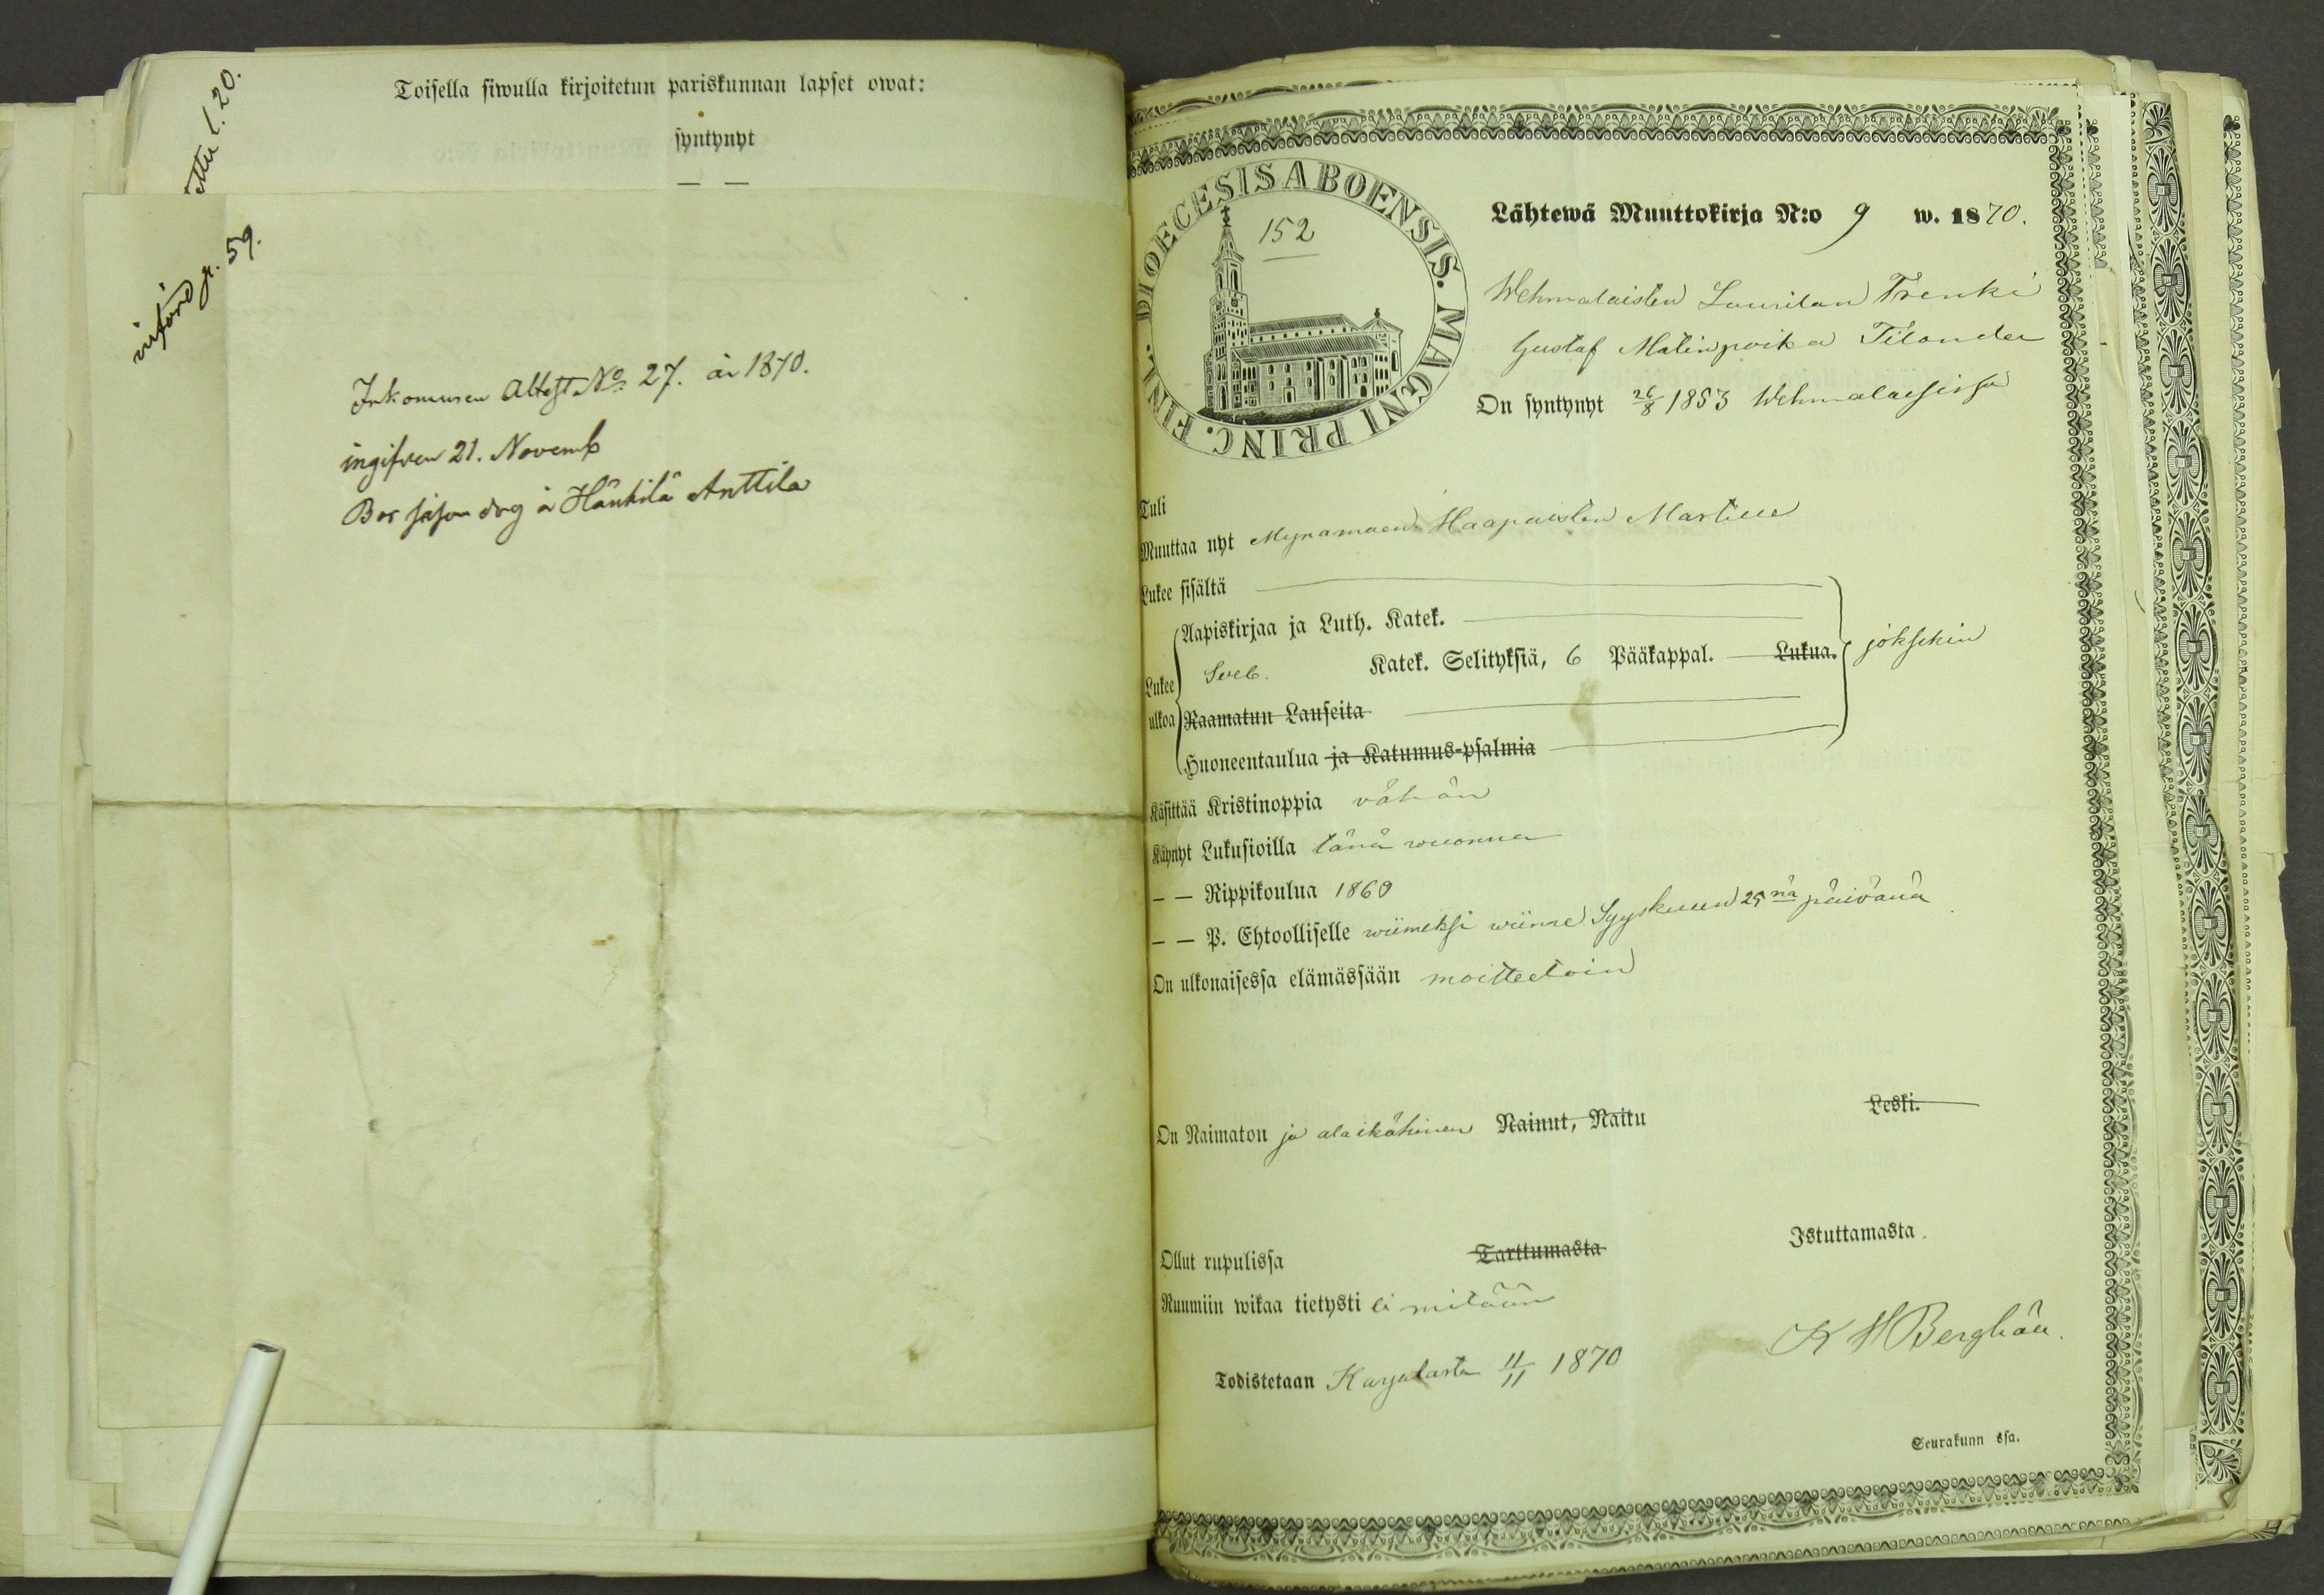 Toisella siwulla kirjoitetun pariskunnan lapset owat:
syntynyt
— —
l. 20.
införd p. 59.
Inkommen Attest No 27. år 1870.
ingifven 21. Novemb
Bor såsom drg å Hänkilä Anttila
DIOECESIS ABOENSIS. MAGNI PRINC. FINL.
152
Lähtewä Muuttokirja N:o 9 w. 1870.
Wehmalaisten Laurilan Trenki
Gustaf Matinpoika Tilander
On syntynyt 26/8 1853 Wehmalaisissa
Tuli
Muuttaa nyt Mynamaen Haapaisten Martille
Lukee sisältä
Lukee ulkoa
Aapiskirjaa ja Luth. Katek.
Sveb. Katek. Selityksiä, 6 Pääkappal. Lukua. joksekin
Raamatun Lauseita
Huoneentaulua ja Katumus-psalmia
Käsittää Kristinoppia vähän
Käynyt Lukusioilla tänä wuonna
— — Rippikoulua 1869
— — P. Ehtoolliselle wiimeksi wiime Syyskuun 25nä päivänä
On ulkonaisessa elämässään moitteetoin
On Naimaton ja alaikähinen Nainut, Naitu Leski.
Ollut rupulissa Tarttumasta Istuttamasta.
Ruumiin wikaa tietysti ei mitään
Todistetaan Karjalasta 11/11 1870 K H Berghäll.
Seurakunn ssa.